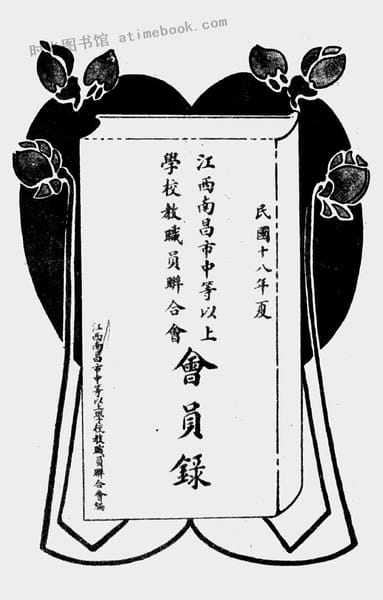 时光图书馆 atimebook.com
民國十八年夏
江西南昌市中等以上
學校教職員聯合會
會員錄
江西南昌市中等以上學校教職員聯合會編